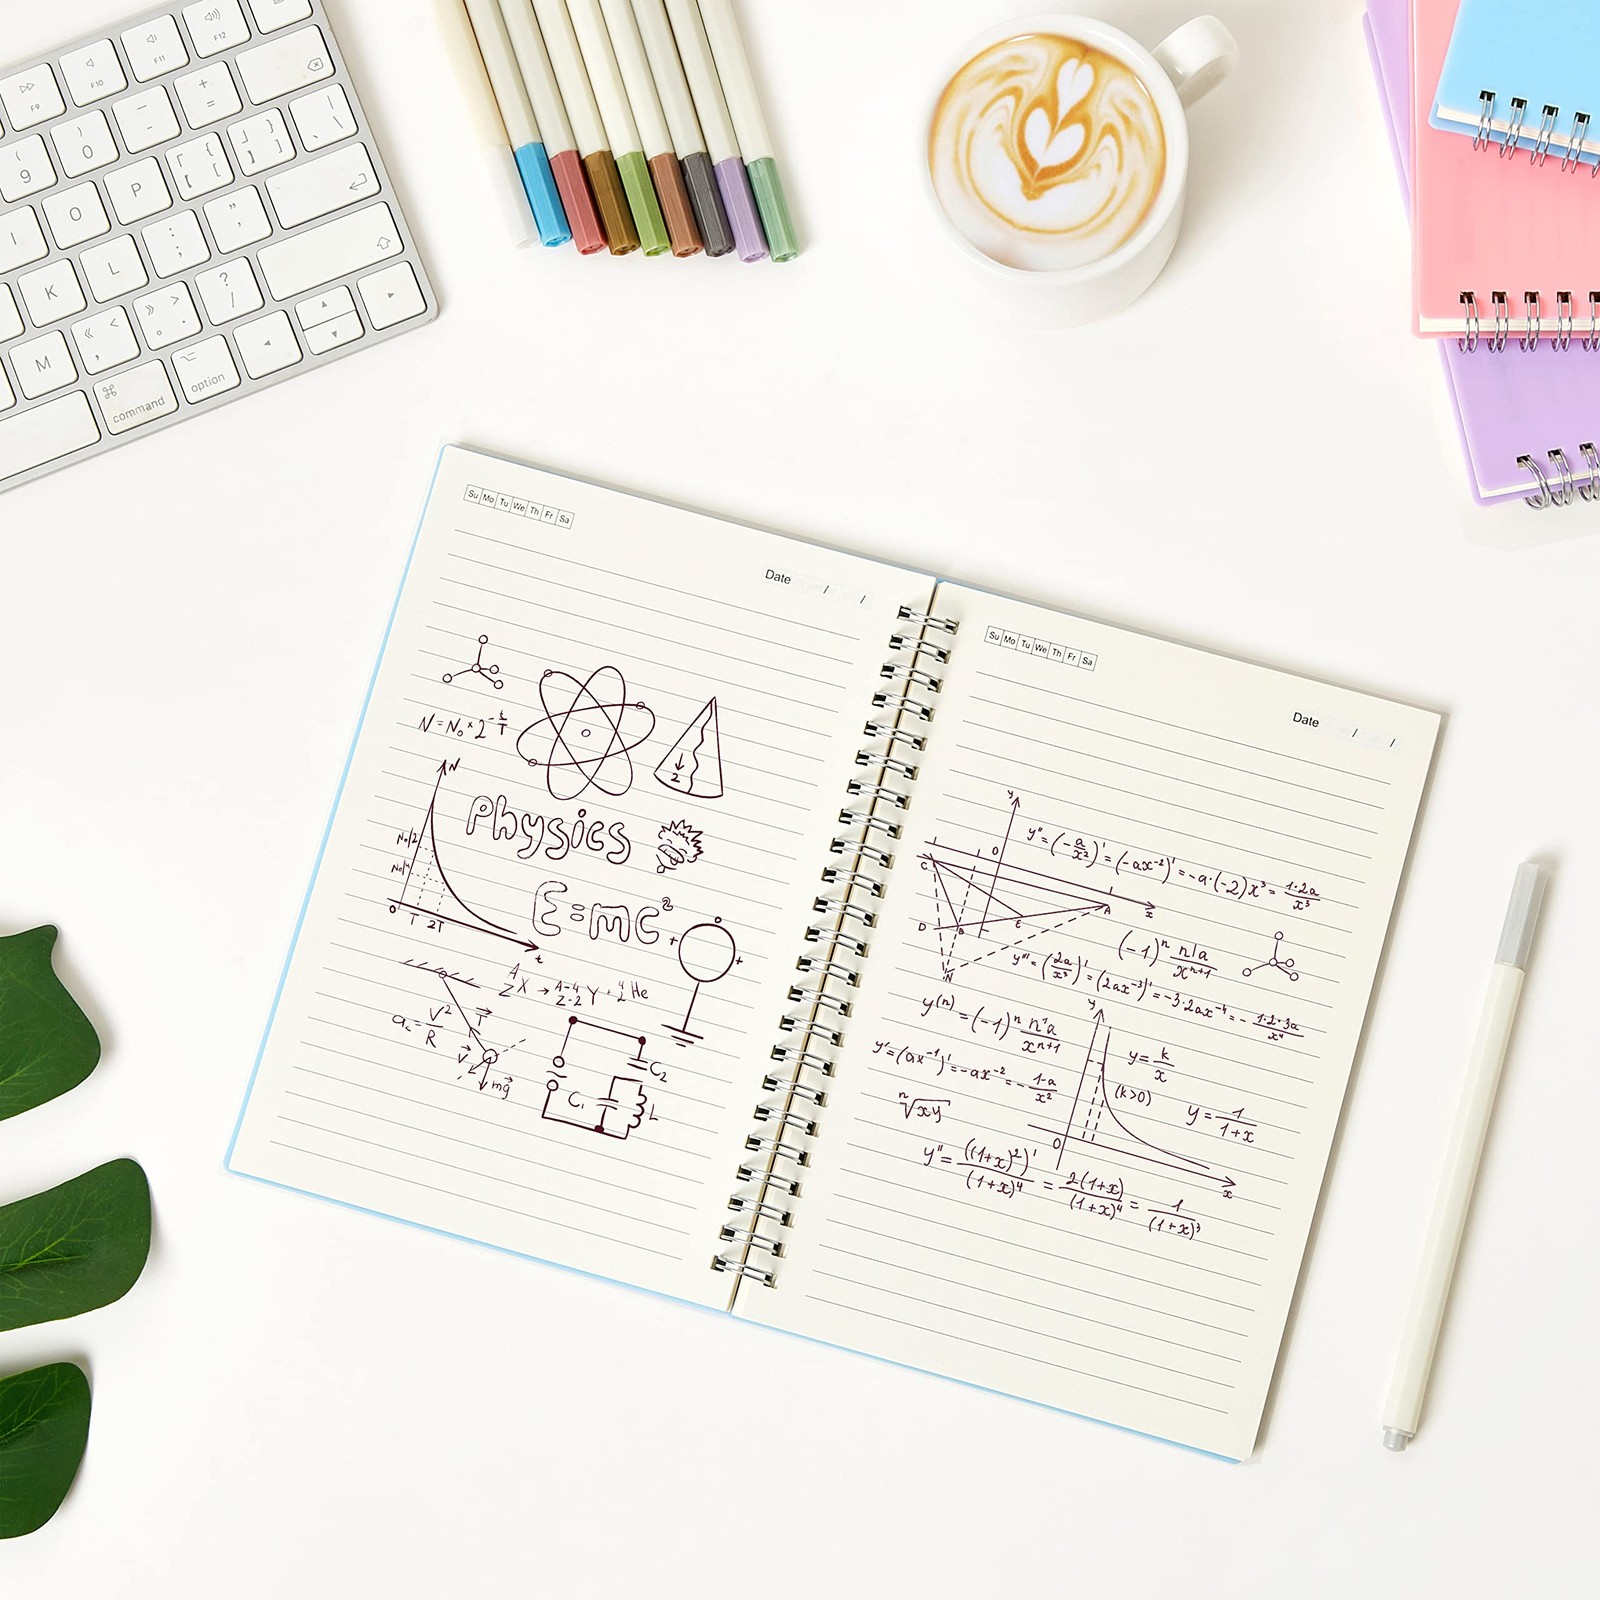 F9
F10
F11
F12
( 9
) 0
- –
+ =
I
O
P
{ [
} ]
| \
K
L
: ;
" '
M
< ,
> .
? /
⌘ command
⌥ option
Su Mo Tu We Th Fr Sa
Date / /
N=N₀×2^(-t/T)
2
N
N₀/2
N₀/4
0 T 2T
t
Physics
E=mc²
+ +
A Z X → A-4 Z-2 Y + 4 2 He
a꜀=V²/R
T⃗
V⃗
mg⃗
C₂
C₁
L
Su Mo Tu We Th Fr Sa
Date / /
y
y''=(-a/x²)'=(-ax⁻²)'=-a·(-2)x³=1·2a/x³
0
1
x
C
D B E A
N
(-1)ⁿ n!a/xⁿ⁺¹
y'''=(2a/x³)'=(2ax⁻³)'=-3·2ax⁻⁴=-1·2·3a/x⁴
y⁽ⁿ⁾=(-1)ⁿ n'a/xⁿ⁺¹
y
y=k/x
(k>0)
y'=(ax⁻¹)'=-ax⁻²=-1-a/x²
ⁿ√xy
y=1/1+x
0
x
y''=((1+x)²)'/(1+x)⁴=2(1+x)/(1+x)⁴=1/(1+x)³